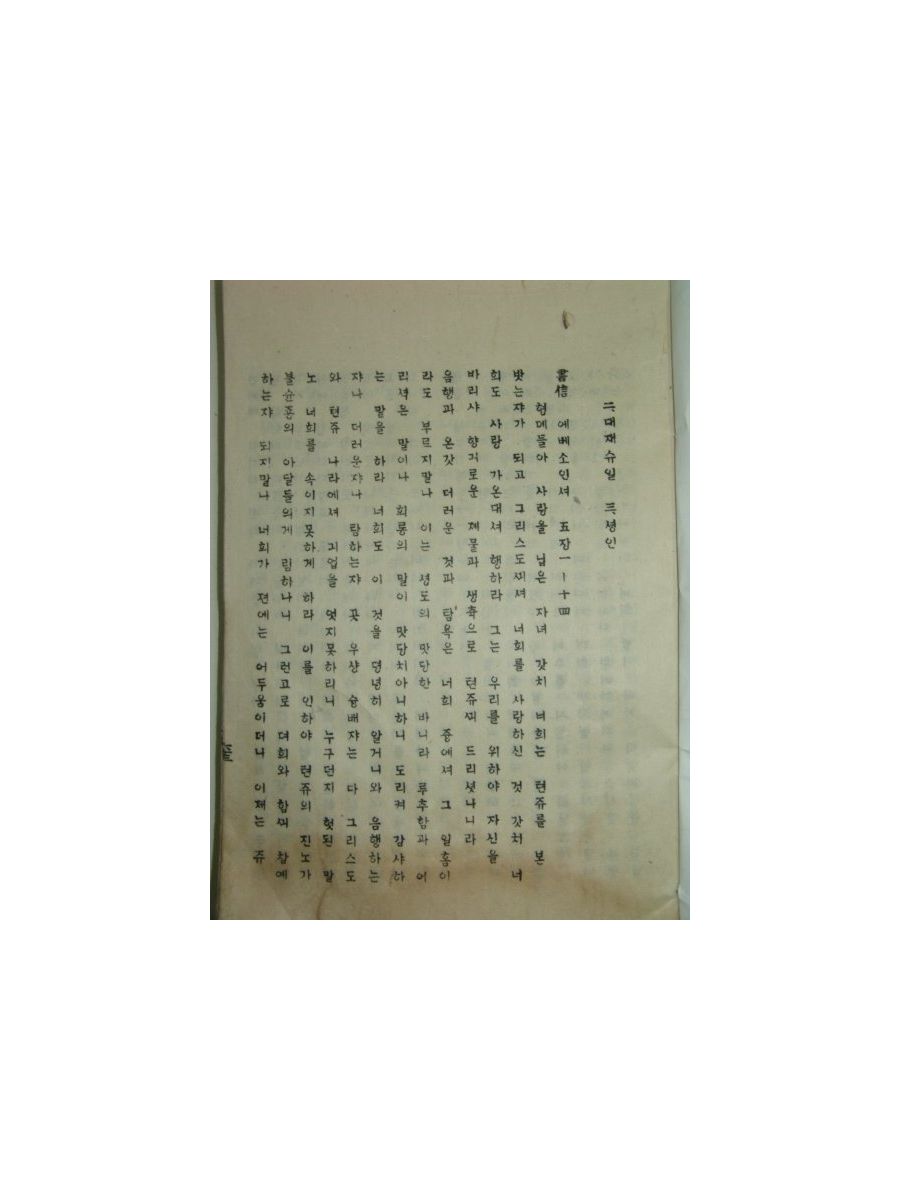 三대재슈일 三셩인
書信 에베소인셔 五장一ㅣ十四
형데들아 사랑을 닙은 자녀 갓치 너희는 텬쥬를 본
밧는쟈가 되고 그리스도끠셔 너희를 사랑하신 것 갓처 너
희도 사랑 가온대셔 행하라 그는 우리를 위하야 자신을
바리샤 향거로운 졔물과 생축으로 텬쥬끠 드리셧나니라
음행과 온갓 더러운 것과 탐욕은 너희 즁에셔 그 일홈이
라도 부르지말나 이는 셩도의 맛당한 바니라 루추함과 어
리셕은 말이나 희롱의 말이 맛당치아니하니 도리켜 감샤하
는 말을 하라 너희도 이 것을 뎡녕히 알거니와 음행하는
쟈나 더러운쟈나 탐하는쟈 곳 우샹 슝배쟈는 다 그리스도
와 텬쥬 나라에셔 긔업을 엇지못하리니 누구던지 헛된 말
노 너희를 속이지못하게 하라 이를 인하야 텬쥬의 진노가
불슌죵의 아달들의게 림하나니 그런고로 뎌희와 함끠 참예
하는쟈 되지말나 너희가 젼에는 어두움이더니 이제는 쥬